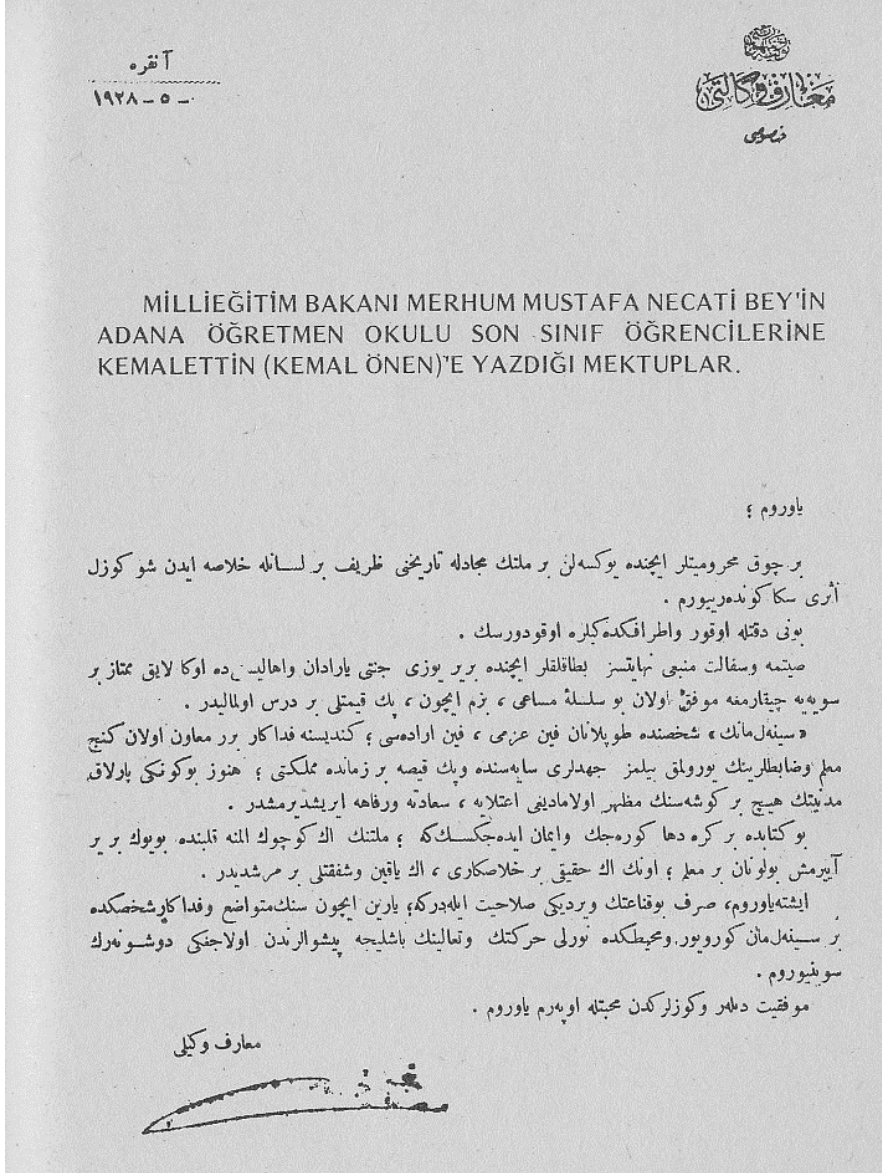 آنقره
١٩٢٨ - ٥ -
معارف وكالتی
خصوصی
MİLLİEĞİTİM BAKANI MERHUM MUSTAFA NECATİ BEY'İN
ADANA ÖĞRETMEN OKULU SON SINIF ÖĞRENCİLERİNE
KEMALETTİN (KEMAL ÖNEN)'E YAZDIĞI MEKTUPLAR.
ياوروم ؛
بر چوق محروميتلر ايچنده يوكسه‌لن بر ملتك مجادله تاريخنی ظريف بر لسانله خلاصه ايدن شو كوزل
اثری سكا كوندەرييورم .
بونی دقتله اوقور واطرافكده‌كيلره اوقودورسك .
صيتمه وسفالت منبعی نهايتسز بطاقلقلر ايچنده برير يوزی جنتی يارادان واهاليسنی ده اوكا لايق ممتاز بر
سويه‌يه چيقارمغه موفق اولان بو سلسلۀ مساعی ، بزم ايچون ، پك قيمتلی بر درس اولماليدر .
« سينه‌لمانك » شخصنده طوپلانان فين عزمی ، فين اراده‌سی ؛ كنديسنه فداكار برر معاون اولان كنج
معلم وضابطلرينك يورولمق بيلمز جهدلری سايه‌سنده وپك قيصه بر زمانده مملكتی ؛ هنوز بوكونكی پارلاق
مدنيتك هيچ بر كوشه‌سنك مظهر اولاماديغی اعتلايه ، سعادته ورفاهه ايريشديرمشدر .
بو كتابده بر كره دها كوره‌جك وايمان ايده‌جكسك‌كه ؛ ملتنك اك كوچوك المنه قلبنده بويوك بر ير
آييرمش بولونان بر معلم ؛ اونك اك حقيقی بر خلاصكاری ، اك ياقين وشفقتلی بر مرشديدر .
ايشته‌ياوروم، صرف بوقناعتك ويرديكی صلاحيت ايله‌دركه؛ يارين ايچون سنك‌متواضع وفداكارشخصكده
بر سينه‌لمان كورويور.ومحيطكده نورلی حركتك وتعالينك باشليجه پيشوالرندن اولاجغكی دوشونه‌رك
سوينيوروم .
موفقيت ديلەر وكوزلركدن محبتله اوپەرم ياوروم .
معارف وكيلی